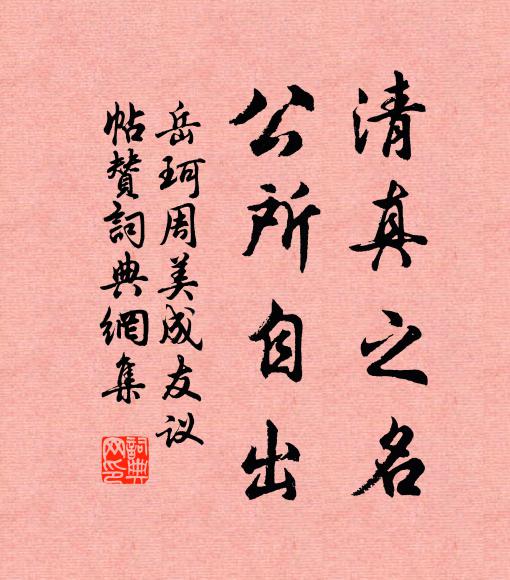 清真之名
公所自出
岳珂周美成友议
帖赞詞典網集
詞典网印